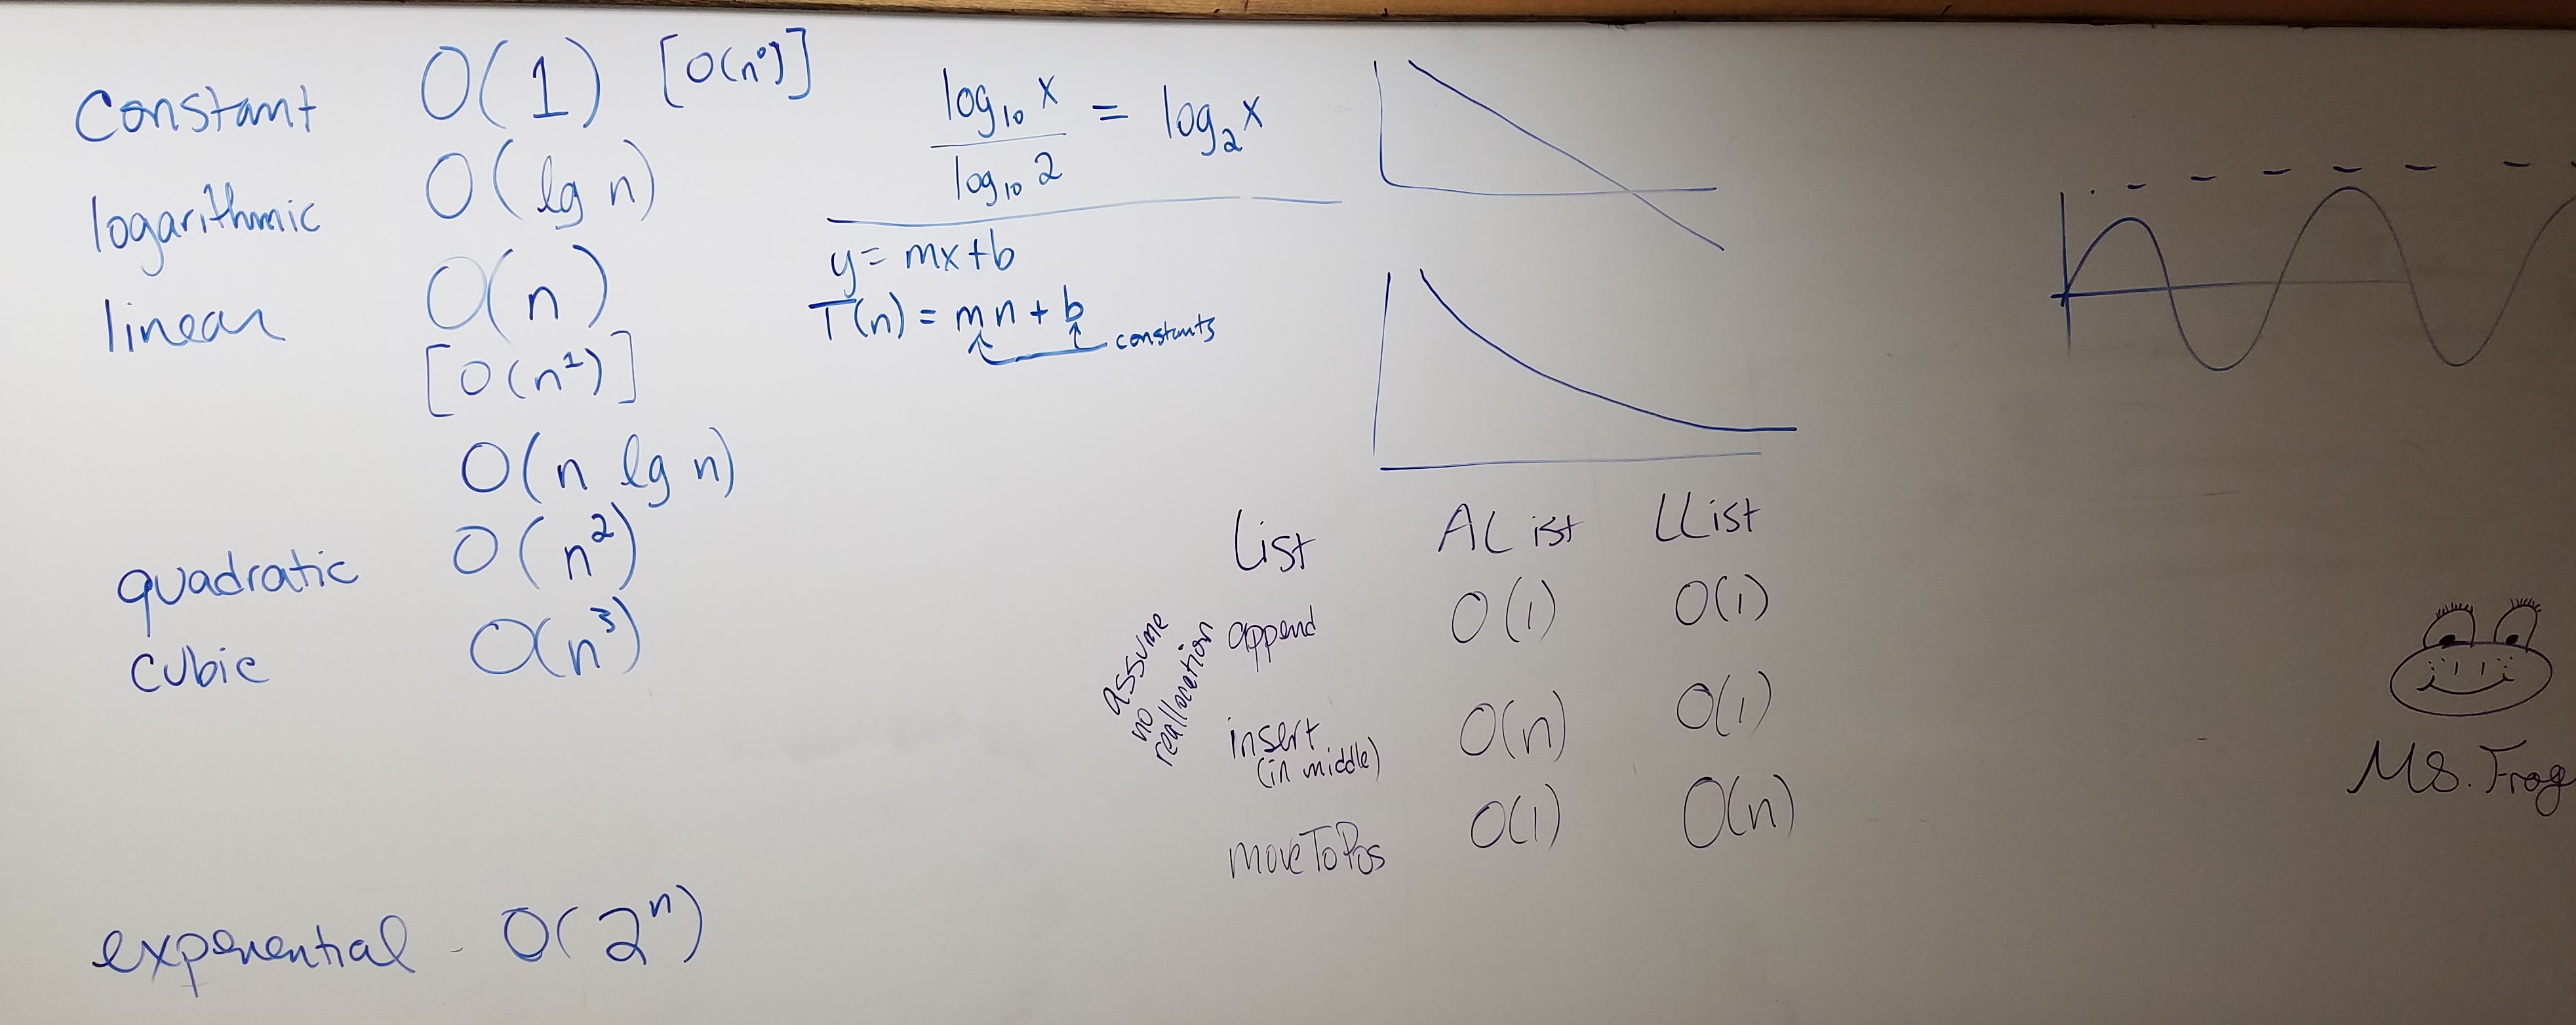 Constant O(1) [O(n⁰)]
logarithmic O(lg n)
linear O(n)
[O(n¹)]
O(n lg n)
quadratic O(n²)
cubic O(n³)
exponential - O(2ⁿ)
log₁₀ x / log₁₀ 2 = log₂ x
y = mx+b
T(n) = mn + b
constants
List AList LList
append O(1) O(1)
insert O(n) O(1)
(in middle)
moveToPos O(1) O(n)
assume
no
reallocation
Ms. Frog